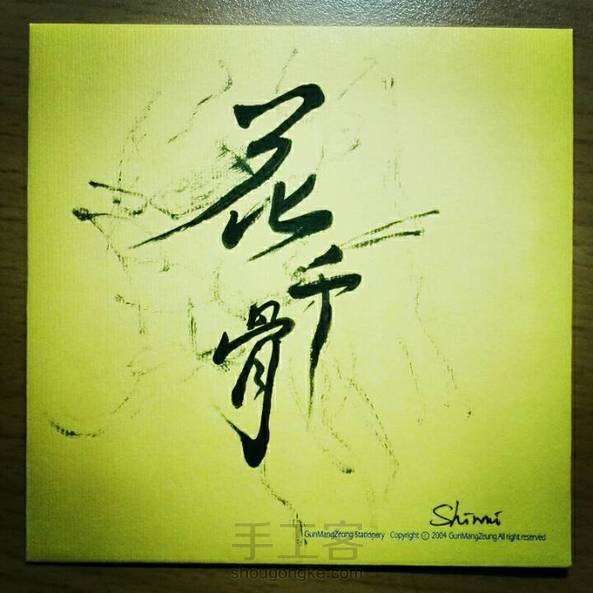 花
千
骨
Shinni
GunMangZirung Stationery Copyright © 2004 GunMangZirung All right reserved
手工客
shougongke.com